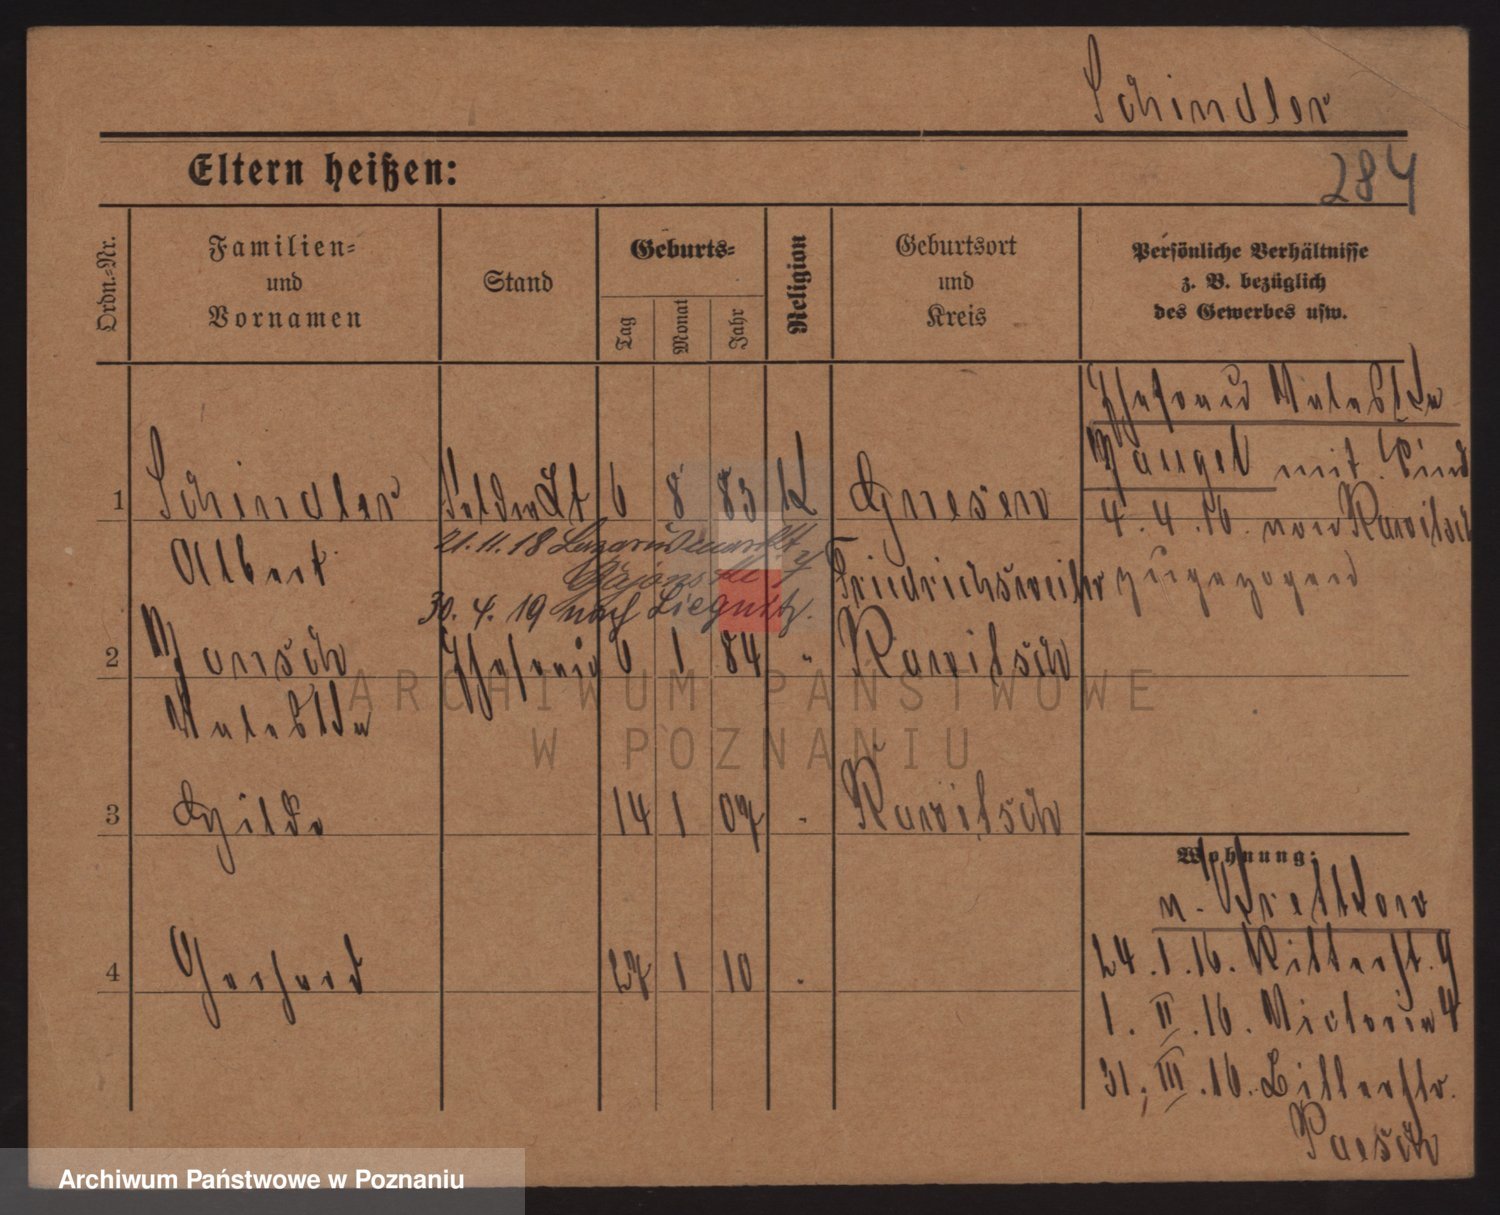 Schindler
Eltern heißen:
284
Ordn.=Nr.
Familien=
und
Vornamen
Stand
Geburts=
Tag
Monat
Jahr
Religion
Geburtsort
und
Kreis
Persönliche Verhältnisse
z. B. bezüglich
des Gewerbes usw.
Ehefrau
mit Kind
4.4.16. von Rawitsch
zugezogen
1 Schindler 6 8 83 K Gnesen
Albert
21.11.18
Friedrichsweiler
30.4.19 nach Liegnitz.
2 Jansch Ehefrau 6 1 84 " Rawitsch
3 Hilde 14 1 07 " Rawitsch
4 Gerhard 27 1 10 "
Wohnung:
24.1.16. Ritterst. 9
1.II.16. Victoria 4
31.III.16. Ritterstr.
ARCHIWUM PAŃSTWOWE
W POZNANIU
Archiwum Państwowe w Poznaniu